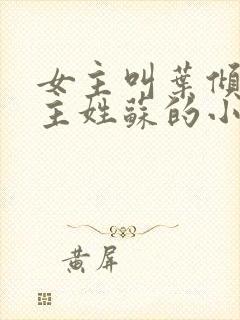 女主叫葉傾
主姓蘇的小
黄屏